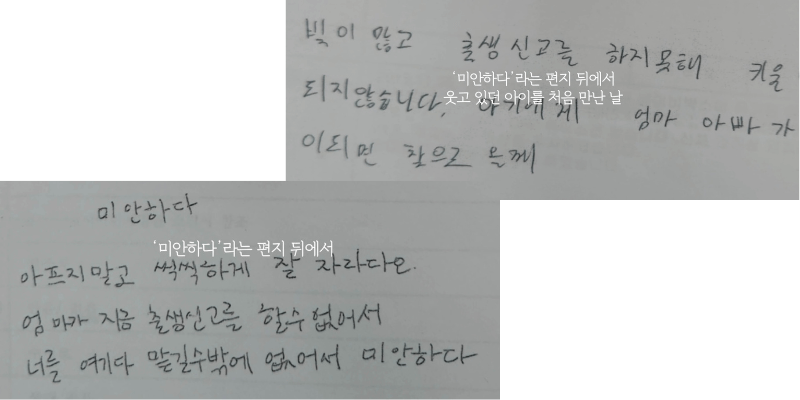 빚이 많고 출생신고를 하지못해 키울
되지않습니다. 아기에게 엄마 아빠가
이되면 찾으로 올께
'미안하다'라는 편지 뒤에서
웃고 있던 아이를 처음 만난 날
미안하다
아프지말고 씩씩하게 잘 자라다오.
엄마가 지금 출생신고를 할수 없어서
너를 여기다 맡길수밖에 없어서 미안하다
'미안하다'라는 편지 뒤에서